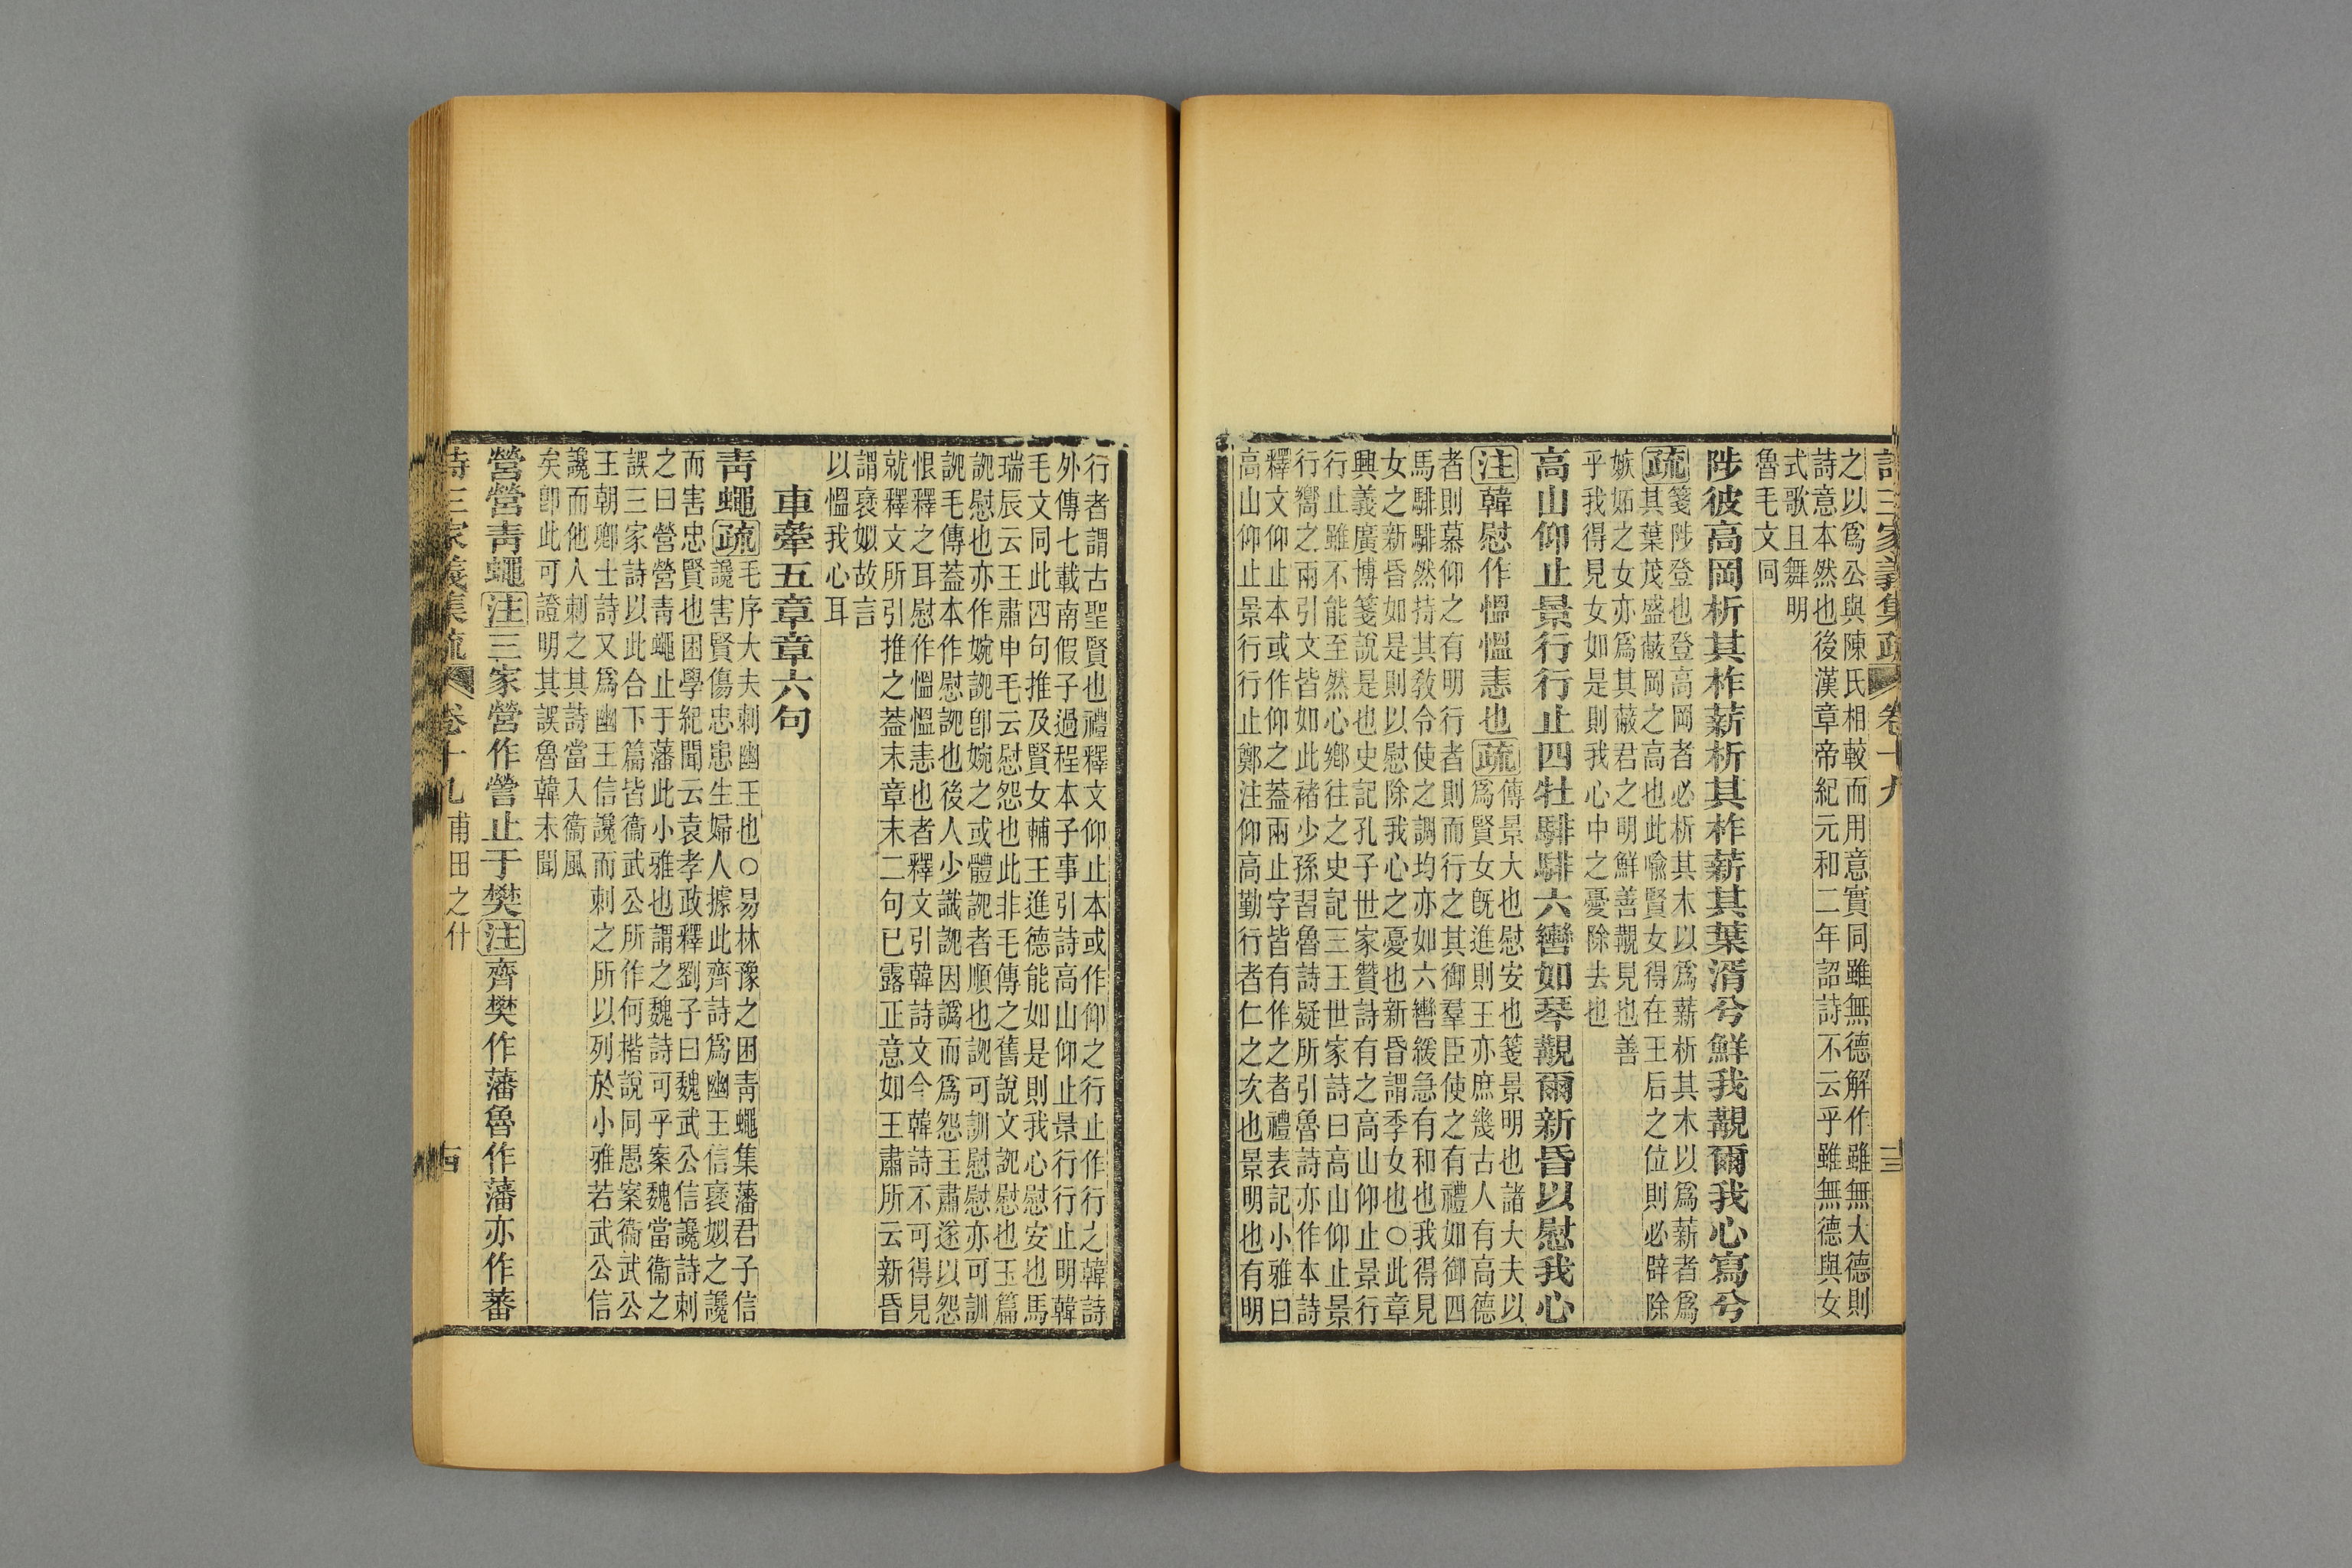 詩三家義集疏 卷十九 十三
之以爲公與陳氏相較而用意實同雖無德解作雖無大德則
詩意本然也後漢章帝紀元和二年詔詩不云乎雖無德與女
式歌且舞明
魯毛文同
陟彼高岡析其柞薪析其柞薪其葉湑兮鮮我覯爾我心寫兮
疏箋陟登也登高岡者必析其木以爲薪析其木以爲薪者爲
其葉茂盛蔽岡之高也此喻賢女得在王后之位則必辟除
嫉妬之女亦爲其蔽君之明鮮善覯見也善
乎我得見女如是則我心中之憂除去也
高山仰止景行行止四牡騑騑六轡如琴覯爾新昏以慰我心
注韓慰作慍慍恚也疏傳景大也慰安也箋景明也諸大夫以
爲賢女既進則王亦庶幾古人有高德
者則慕仰之有明行者則而行之其御羣臣使之有禮如御四
馬騑騑然持其教令使之調均亦如六轡緩急有和也我得見
女之新昏如是則以慰除我心之憂也新昏謂季女也○此章
興義廣博箋說是也史記孔子世家贊詩有之高山仰止景行
行止雖不能至然心鄉往之史記三王世家詩曰高山仰止景
行嚮之兩引文皆如此褚少孫習魯詩疑所引魯詩亦作本詩
釋文仰止本或作仰之蓋兩止字皆有作之者禮表記小雅曰
高山仰止景行行止鄭注仰高勤行者仁之次也景明也有明
行者謂古聖賢也禮釋文仰止本或作仰之行止作行之韓詩
外傳七載南假子過程本子事引詩高山仰止景行行止明韓
毛文同此四句推及賢女輔王進德能如是則我心慰安也馬
瑞辰云王肅申毛云慰怨也此非毛傳之舊說文䛄慰也玉篇
䛄慰也亦作婉䛄卽婉之或體䛄者順也䛄可訓慰慰亦可訓
䛄毛傳蓋本作慰䛄也後人少識䛄因譌而爲怨王肅遂以怨
恨釋之耳慰作慍慍恚也者釋文引韓詩文今韓詩不可得見
就釋文所引推之蓋末章末二句已露正意如王肅所云新昏
謂褒姒故言
以慍我心耳
車舝五章章六句
青蠅疏毛序大夫刺幽王也○易林豫之困青蠅集藩君子信
讒害賢傷忠患生婦人據此齊詩爲幽王信褒姒之讒
而害忠賢也困學紀聞云袁孝政釋劉子曰魏武公信讒詩刺
之曰營營青蠅止于藩此小雅也謂之魏詩可乎案魏當衞之
誤三家詩以此合下篇皆衞武公所作何楷說同愚案衞武公
王朝卿士詩又爲幽王信讒而刺之所以列於小雅若武公信
讒而他人刺之其詩當入衞風
矣卽此可證明其誤魯韓未聞
營營青蠅注三家營作謍止于樊注齊樊作藩魯作藩亦作蕃
詩三家義集疏 卷十九 甫田之什